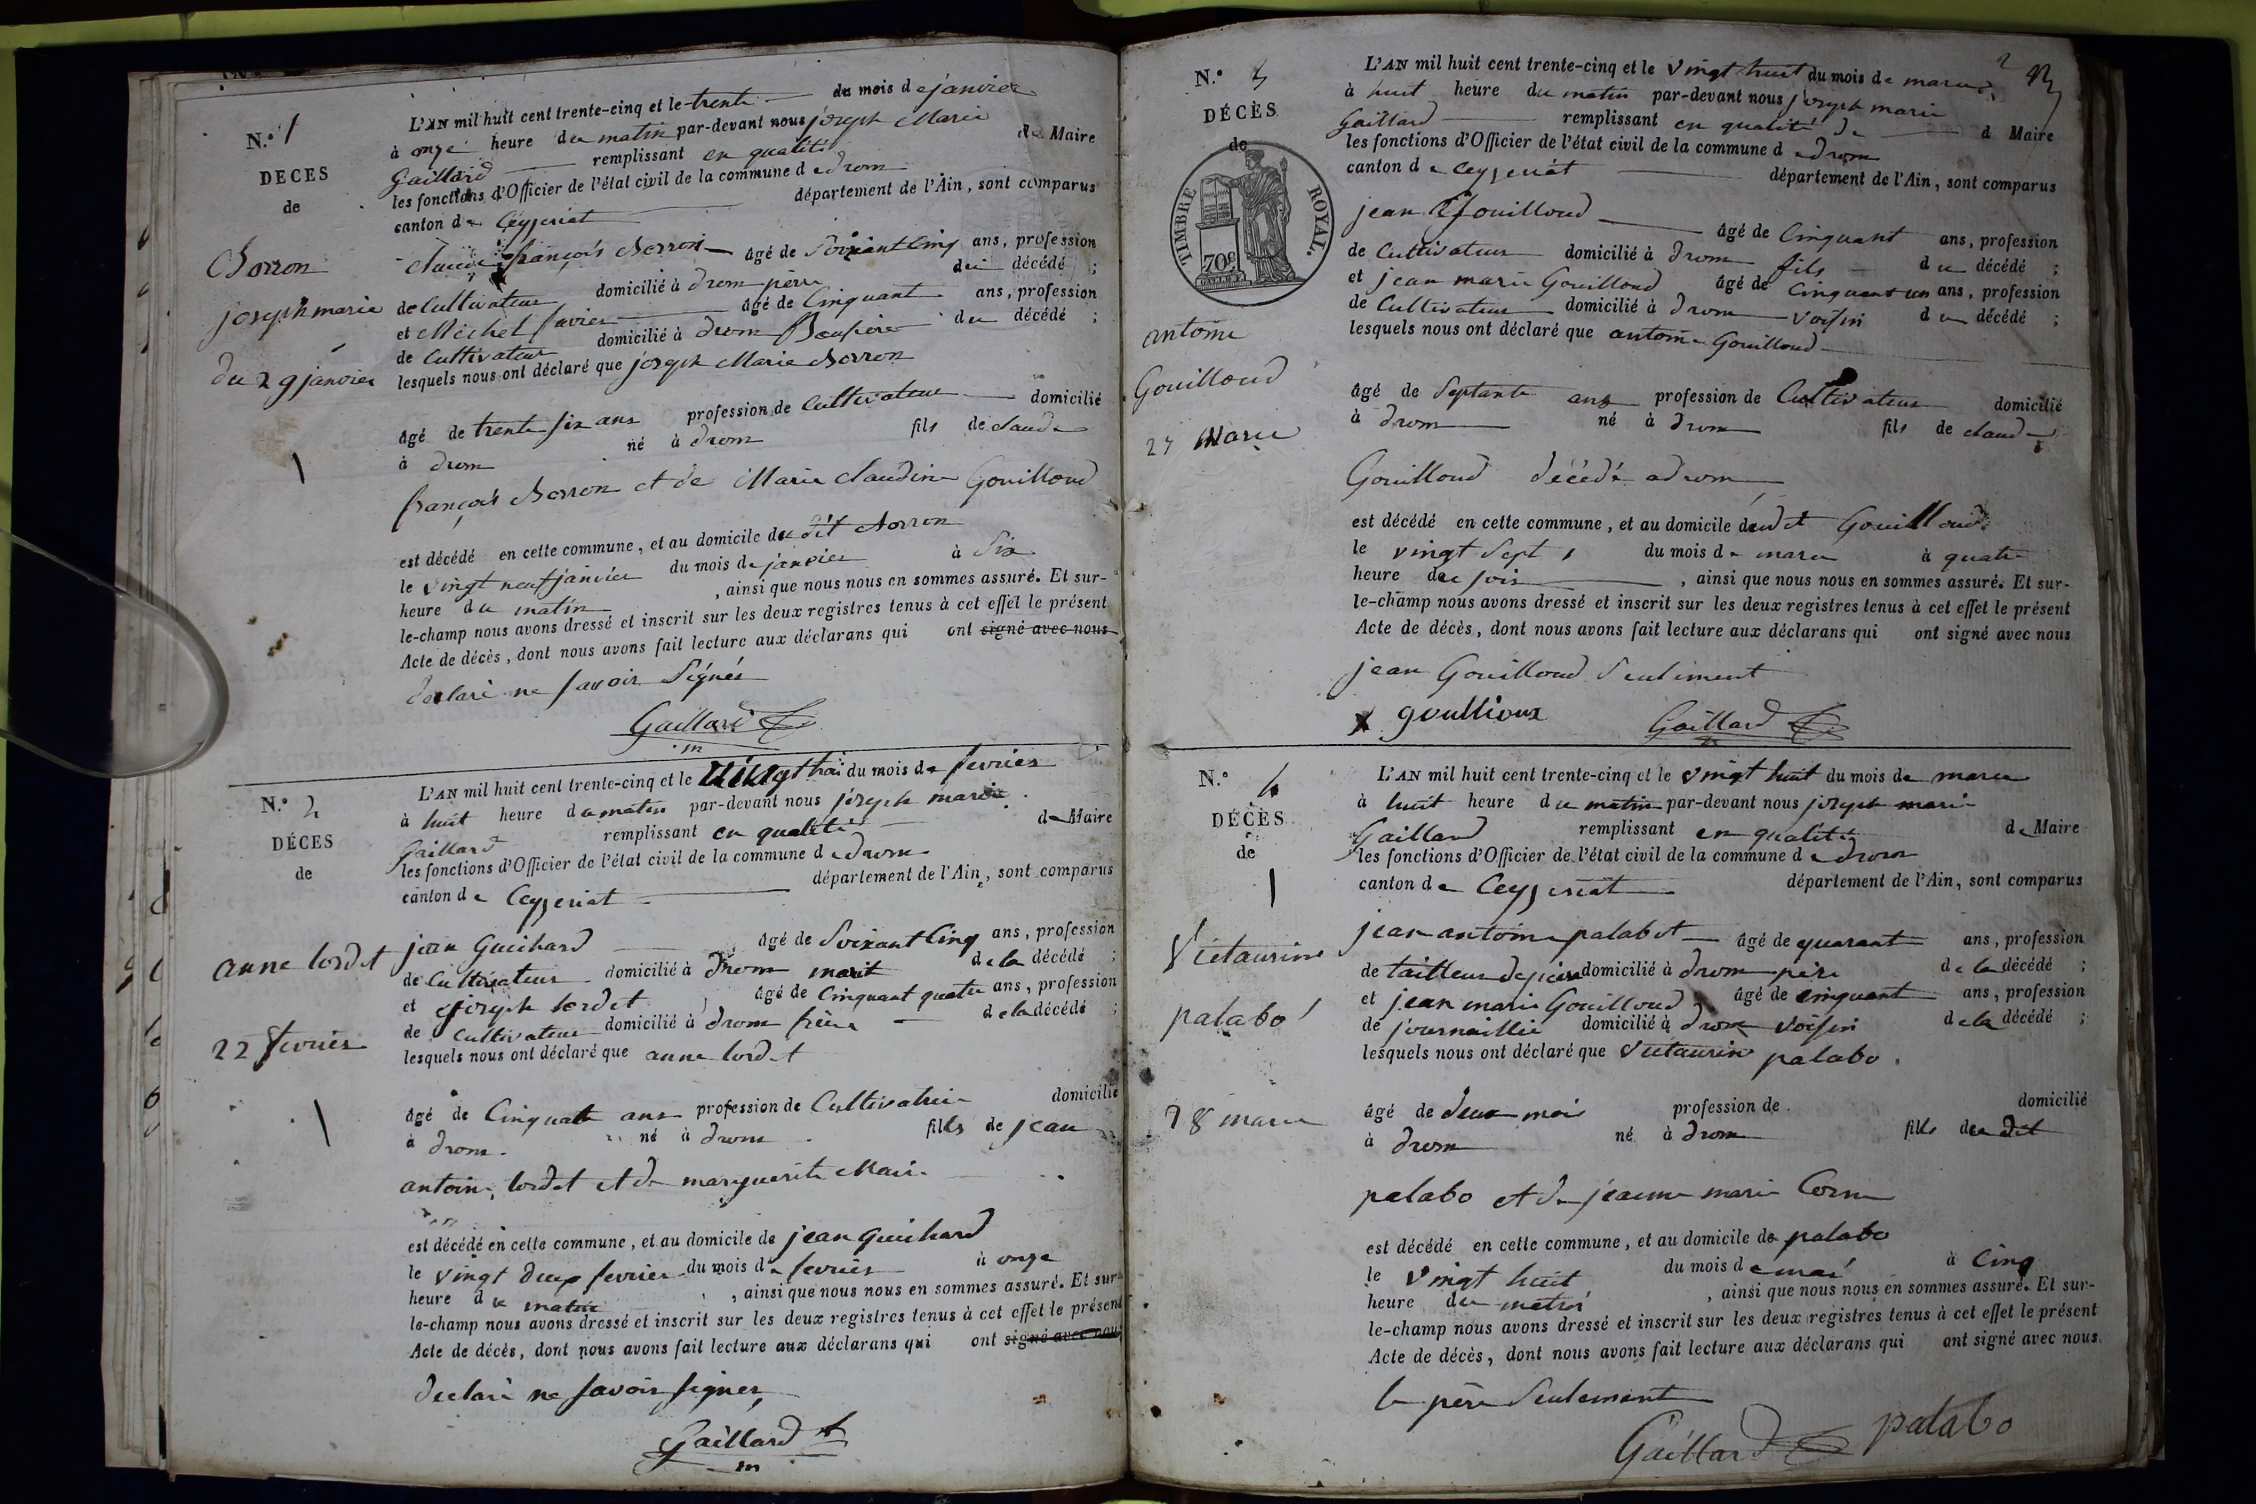 N.° 1
DECES
de
Chorron
joseph marie
du 29 janvier
L'AN mil huit cent trente-cinq et le trente du mois de janvier
à onze heure du matin par-devant nous joseph Marie
Gaillard remplissant en qualité de Maire
les fonctions d'Officier de l'état civil de la commune de drom
canton de Ceyzeriat département de l'Ain, sont comparus
claude françois chorron âgé de Soixant Cinq ans, profession
de Cultivateur domicilié à drom père du décédé ;
et Michel favier âgé de Cinquant ans, profession
de Cultivateur domicilié à drom Beaupere du décédé ;
lesquels nous ont déclaré que joseph Marie chorron
âgé de trente six ans profession de Cultivateur domicilié
à drom né à drom fils de claude
françois chorron et de Marie claudine Gouilloud
est décédé en cette commune, et au domicile du dit chorron
le vingt neuf janvier du mois de janvier à Six
heure du matin , ainsi que nous nous en sommes assuré. Et sur-
le-champ nous avons dressé et inscrit sur les deux registres tenus à cet effet le présent
Acte de décès, dont nous avons fait lecture aux déclarans qui ont signé avec nous
declaré ne savoir Signer
Gaillard
m
N.° 2
DÉCES
de
anne lordet
22 fevrier
L'AN mil huit cent trente-cinq et le vingt trois du mois de fevrier
à huit heure du matin par-devant nous joseph marie
Gaillard remplissant en qualité de Maire
les fonctions d'Officier de l'état civil de la commune de drom
canton de Ceyzeriat département de l'Ain, sont comparus
jean Guichard âgé de Soixant Cinq ans, profession
de Cultivateur domicilié à drom marit de la décédé ;
et joseph lordet âgé de Cinquant quatre ans, profession
de Cultivateur domicilié à drom frere de la décédé ;
lesquels nous ont déclaré que anne lordet
âgé de Cinquante ans profession de Cultivatrice domicilié
à drom né à drom fills de jean
antoine lordet et de marguerite Mair
est décédé en cette commune, et au domicile de jean Guichard
le vingt deux fevrier du mois de fevrier à onze
heure du matin , ainsi que nous nous en sommes assuré. Et sur-
le-champ nous avons dressé et inscrit sur les deux registres tenus à cet effet le présent
Acte de décès, dont nous avons fait lecture aux déclarans qui ont signé avec nous
declaré ne savoir signer
Gaillard
m
N.° 3
DÉCÈS
de
TIMBRE ROYAL.
70c
antoine
Gouilloud
27 Mars
L'AN mil huit cent trente-cinq et le vingt huit du mois de mars
à huit heure du matin par-devant nous joseph marie
Gaillard remplissant en qualité de de Maire
les fonctions d'Officier de l'état civil de la commune de drom
canton de Ceyzeriat département de l'Ain, sont comparus
jean Gouilloud âgé de Cinquant ans, profession
de Cultivateur domicilié à drom fils du décédé ;
et jean marie Gouilloud âgé de Cinquant un ans, profession
de Cultivateur domicilié à drom voisin du décédé ;
lesquels nous ont déclaré que antoine Gouilloud
âgé de Septante ans profession de Cultivateur domicilié
à drom né à drom fils de claude
Gouilloud décédé a drom
est décédé en cette commune, et au domicile dudit Gouilloud
le vingt Sept du mois de mars à quatre
heure du soir , ainsi que nous nous en sommes assuré. Et sur-
le-champ nous avons dressé et inscrit sur les deux registres tenus à cet effet le présent
Acte de décès, dont nous avons fait lecture aux déclarans qui ont signé avec nous
jean Gouilloud Seulement
goullioux Gaillard
N.° 4
DÉCÈS
de
Victaurine
palabo
28 mars
L'AN mil huit cent trente-cinq et le vingt huit du mois de mars
à huit heure du matin par-devant nous joseph marie
Gaillard remplissant en qualité de Maire
les fonctions d'Officier de l'état civil de la commune de drom
canton de Ceyzeriat département de l'Ain, sont comparus
jean antoine palabot âgé de quarant ans, profession
de tailleur de pierre domicilié à drom père de la décédé ;
et jean marie Gouilloud âgé de cinquant ans, profession
de journaillie domicilié à drom voisin de la décédé ;
lesquels nous ont déclaré que Victaurine palabo
âgé de deux mois profession de domicilié
à drom né à drom fills du dit
palabo et de jeanne marie Corne
est décédé en cette commune, et au domicile de palabo
le vingt huit du mois de mars à Cinq
heure du matin , ainsi que nous nous en sommes assuré. Et sur-
le-champ nous avons dressé et inscrit sur les deux registres tenus à cet effet le présent
Acte de décès, dont nous avons fait lecture aux déclarans qui ont signé avec nous
le père Seulement
Gaillard palabo